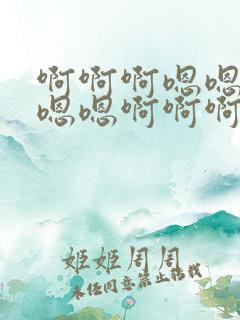 啊啊啊嗯嗯
嗯嗯啊啊啊
姬姬周周
未经同意禁止转载